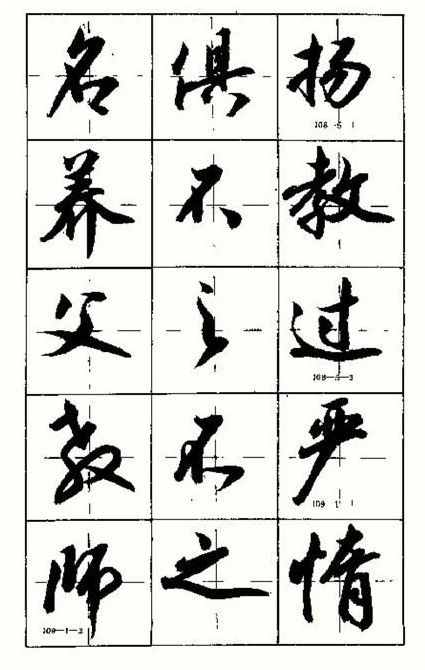 名俱扬
108-5-1
养不教
父之过
教不严
109-1-1
师之惰
109-1-2